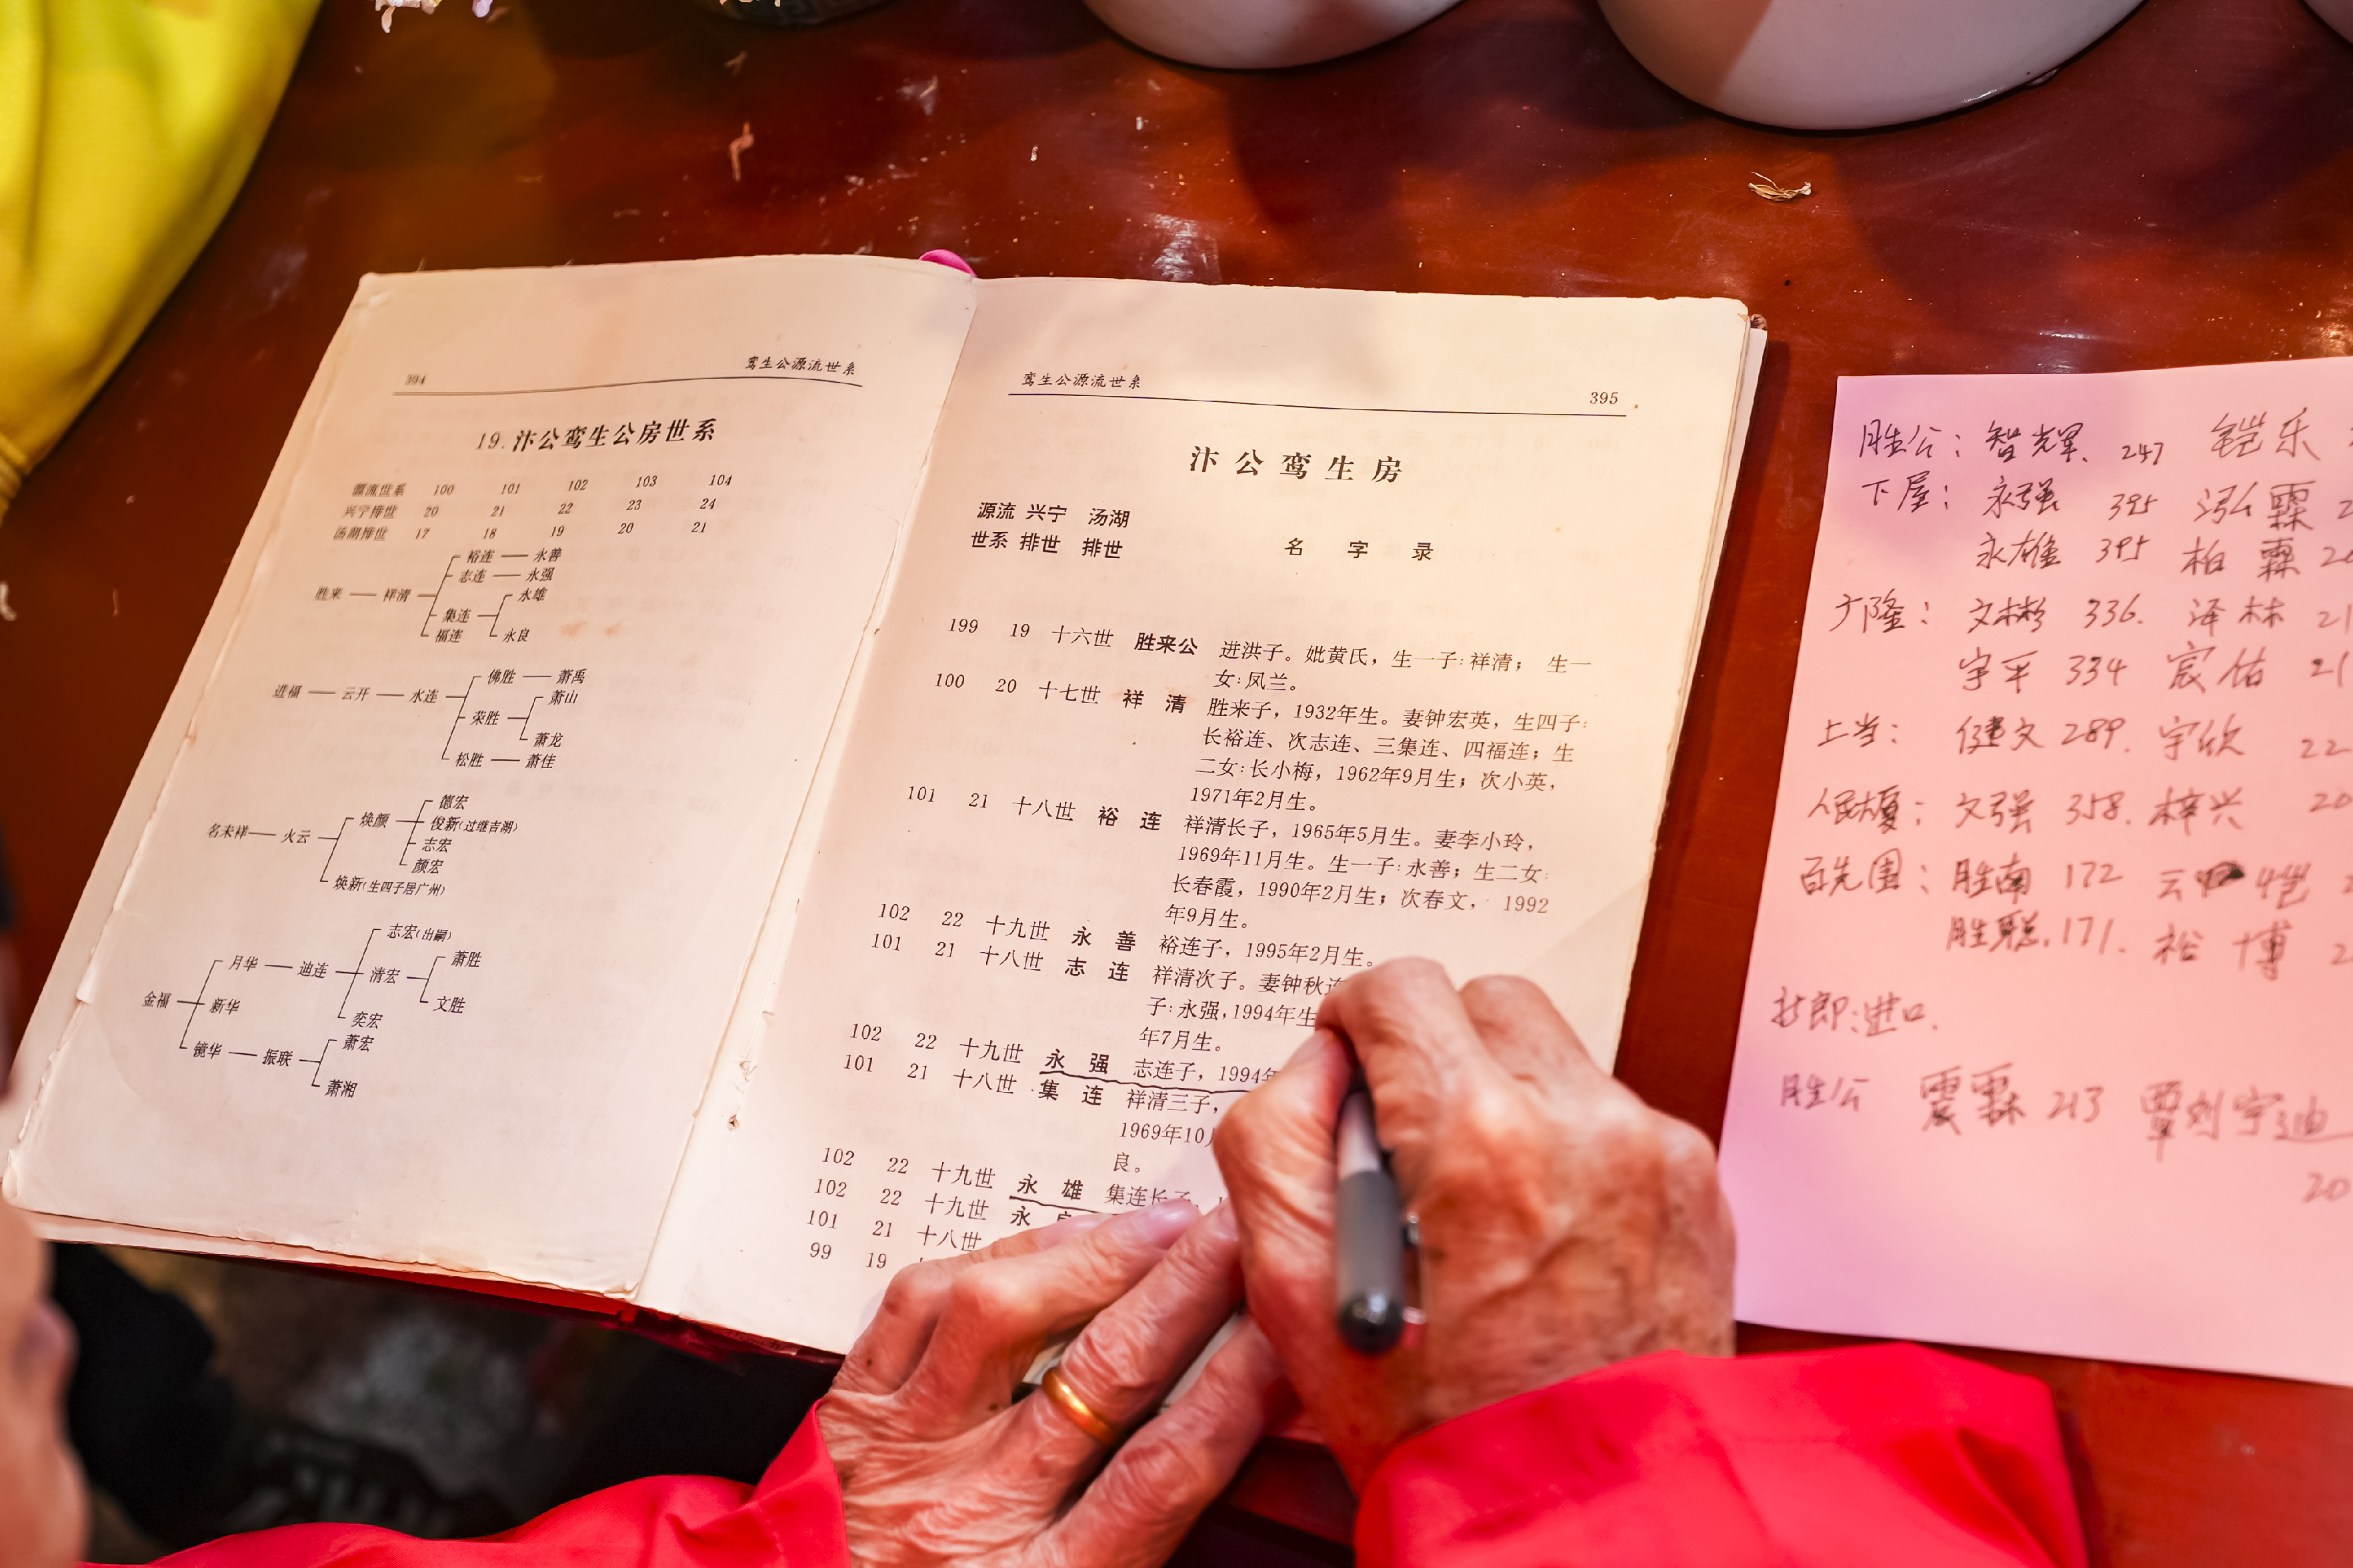 394 鸾生公源流世系
19. 汴公鸾生公房世系
源流世系 100 101 102 103 104
兴宁排世 20 21 22 23 24
汤湖排世 17 18 19 20 21
裕连 永善
志连 永强
胜来 祥清 永雄
集连
福连 永良
佛胜 萧禹
进福 云开 水连 萧山
荣胜
萧龙
松胜 萧佳
德宏
焕颜 俊新(过继吉湖)
名未祥 火云 志宏
颜宏
焕新(生四子居广州)
志宏(出嗣)
月华 迪连 清宏 萧胜
金福 新华 文胜
奕宏
镜华 振联 萧宏
萧湘
鸾生公源流世系 395
汴公鸾生房
源流 兴宁 汤湖
世系 排世 排世 名字录
199 19 十六世 胜来公 进洪子。妣黄氏，生一子:祥清； 生一
女:凤兰。
100 20 十七世 祥清 胜来子，1932年生。妻钟宏英，生四子:
长裕连、次志连、三集连、四福连；生
二女:长小梅，1962年9月生；次小英，
1971年2月生。
101 21 十八世 裕连 祥清长子，1965年5月生。妻李小玲，
1969年11月生。生一子:永善；生二女:
长春霞，1990年2月生；次春文，1992
年9月生。
102 22 十九世 永善 裕连子，1995年2月生。
101 21 十八世 志连 祥清次子。妻钟秋连
子:永强,1994年生
年7月生。
102 22 十九世 永强 志连子，1994年
101 21 十八世 集连 祥清三子，
1969年10月
良。
102 22 十九世 永雄 集连长子，
102 22 十九世 永
101 21 十八世
99 19
胜公：智辉、247 铠乐
下屋：永强 395 泓霖 2
永雄 395 柏霖 20
广隆：文彬 336. 泽林 21
宇平 334 宸佑 21
上当：健文 289. 宇欣 22
人民大厦：文强 358. 梓兴 20
百先围：胜南 172 云 恺 2
胜聪. 171. 裕博 2
：进口.
胜公 震霖 213 覃刘宇迪
20